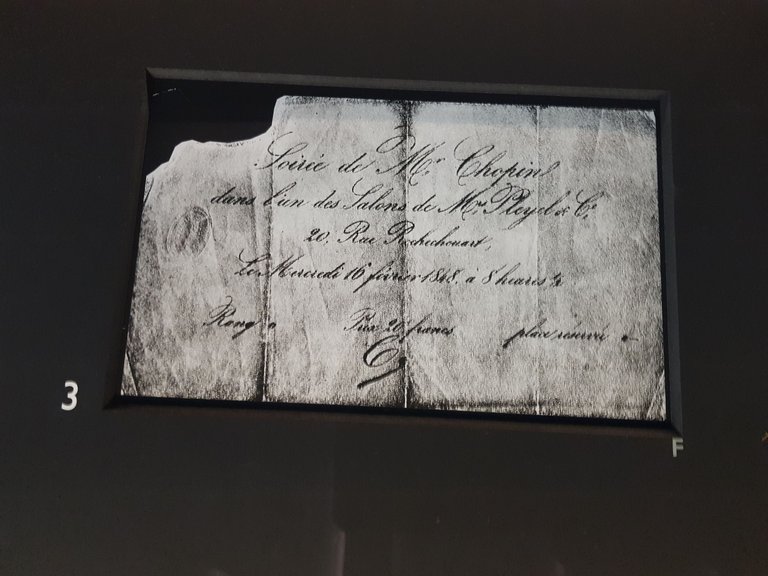 Soirée de Mr. Chopin
dans l'un des Salons de MM. Pleyel & Cie.
20, Rue Rochechouart,
Le Mercredi 16 février 1848, à 8 heures ½
Rang
Prix 20 francs
place réservée
3
F